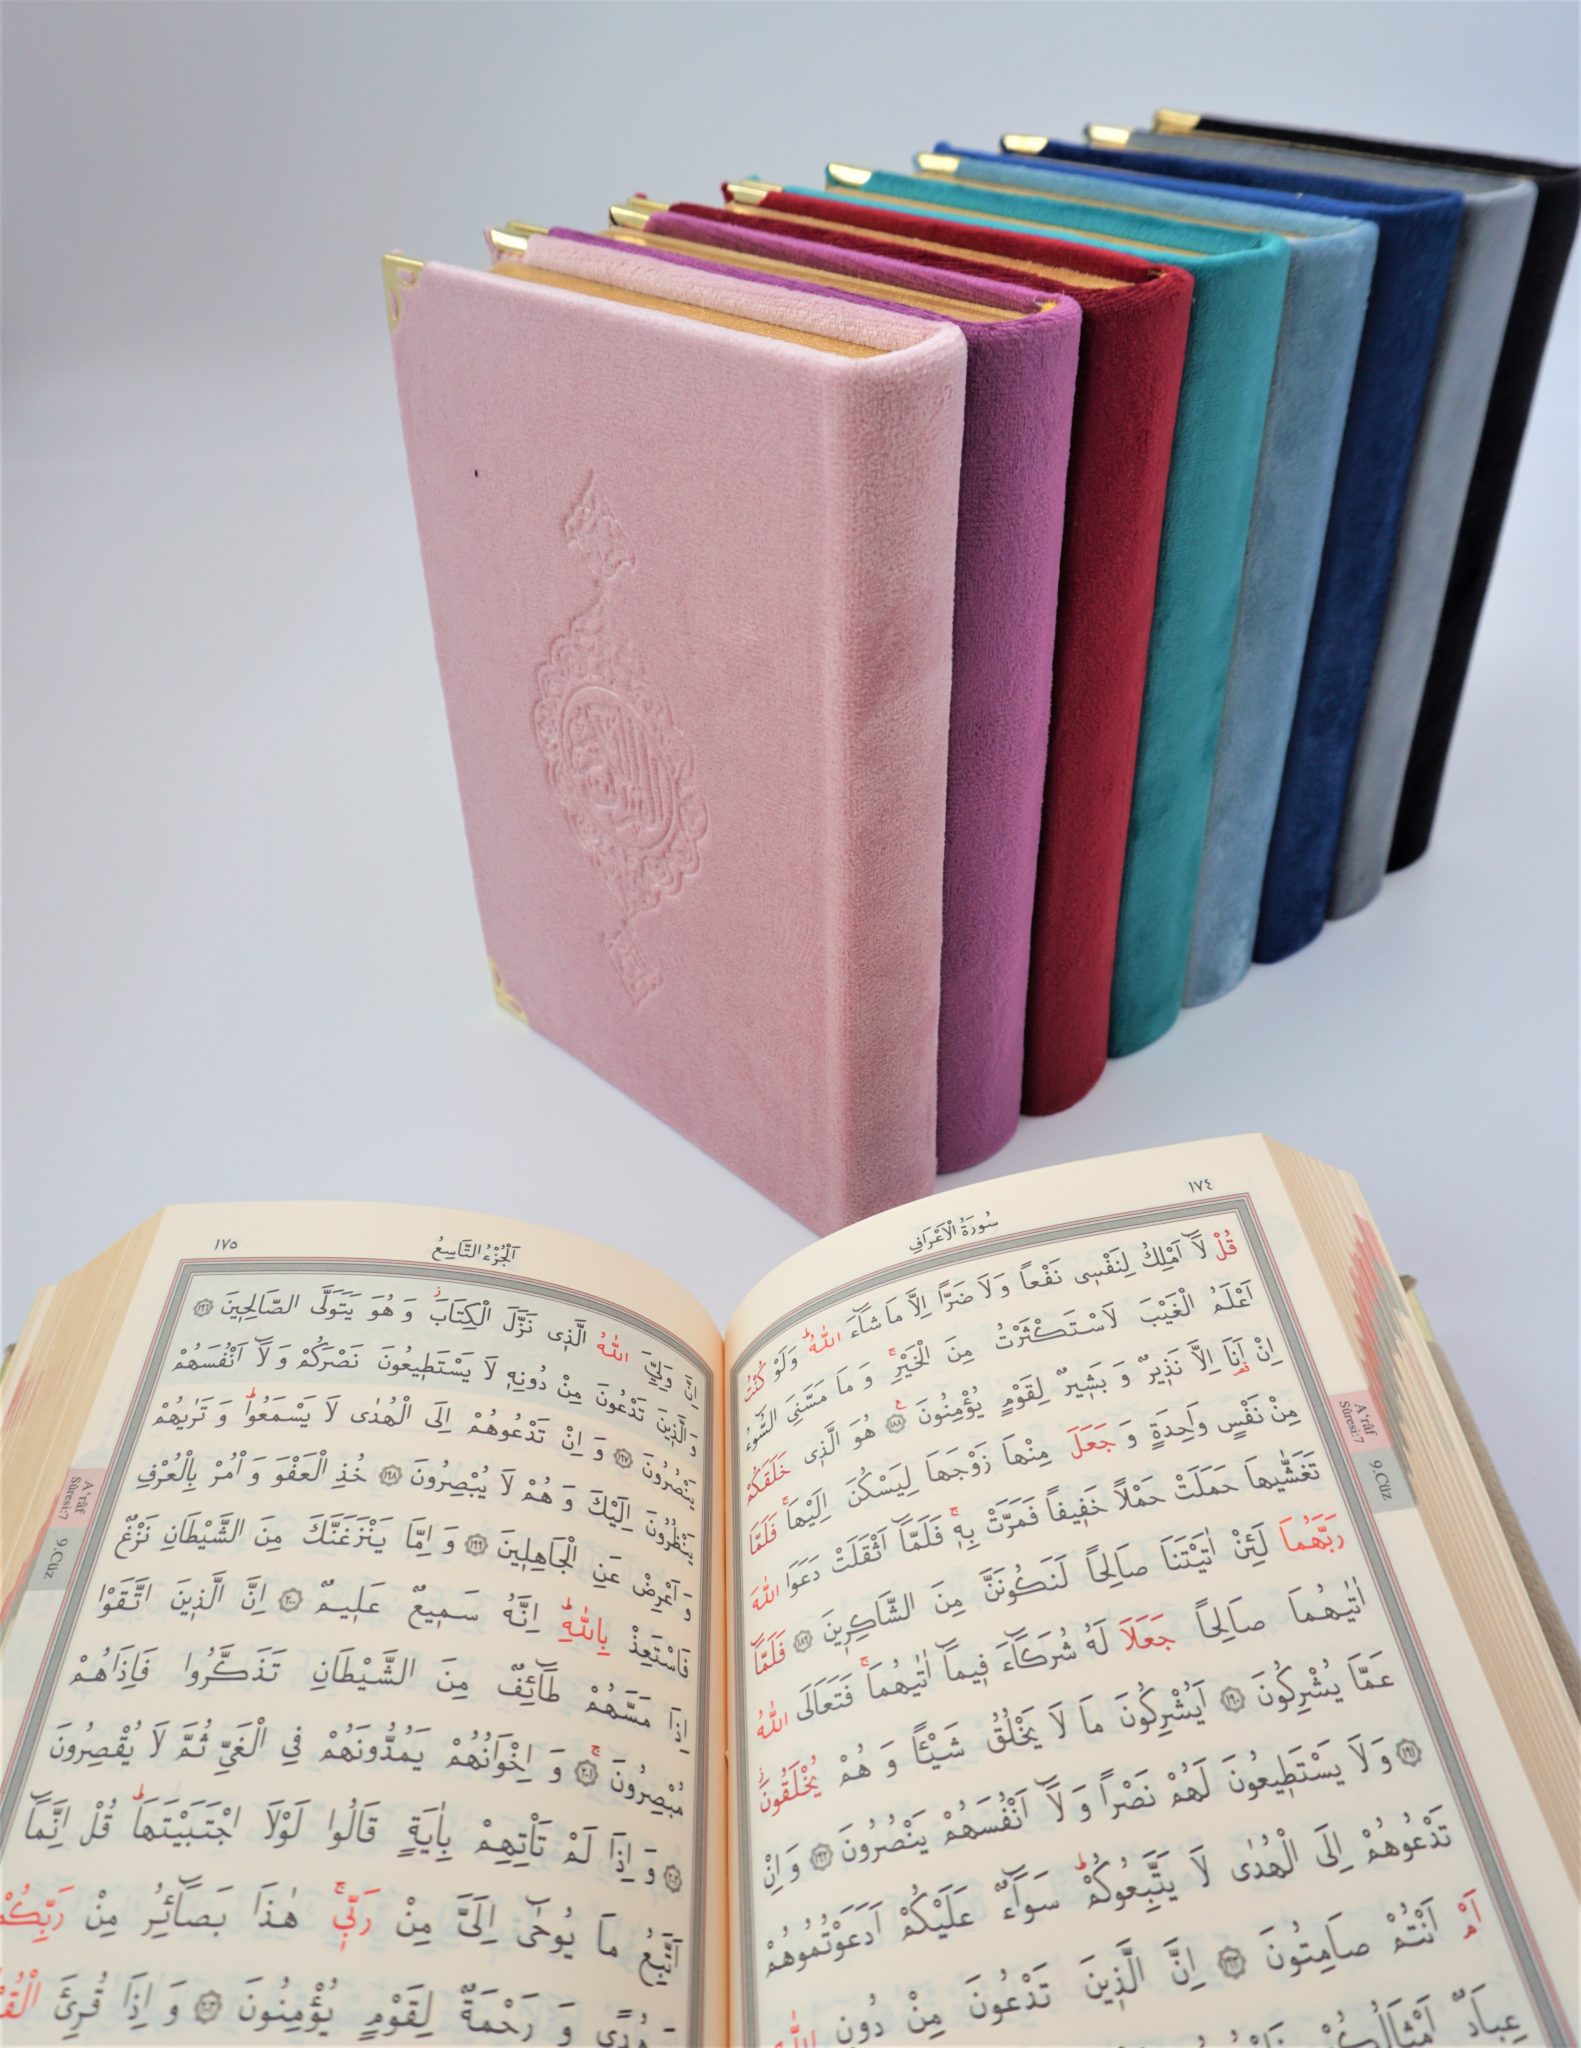 ١٧٤
سُورَةُ الْاَعْرَافِ
قُلْ لَٓا اَمْلِكُ لِنَفْسٖى نَفْعاً وَلَا ضَراًّ اِلَّا مَا شَٓاءَ اللّٰهُؕ وَلَوْ كُنْتُ
اَعْلَمُ الْغَيْبَ لَاسْتَكْثَرْتُ مِنَ الْخَيْرِۚ وَ مَا مَسَّنِىَ السُّٓوءُ
اِنْ اَنَا۬ اِلَّا نَذٖيرٌ وَ بَشٖيرٌ لِقَوْمٍ يُؤْمِنُونَ ۝١٨٨ هُوَ الَّذٖى خَلَقَكُمْ
مِنْ نَفْسٍ وَاحِدَةٍ وَ جَعَلَ مِنْهَا زَوْجَهَا لِيَسْكُنَ اِلَيْهَاۚ فَلَمَّا
تَغَشّٰيهَا حَمَلَتْ حَمْلاً خَفٖيفاً فَمَرَّتْ بِهٖۚ فَلَمَّٓا اَثْقَلَتْ دَعَوَا اللّٰهَ
رَبَّهُمَا لَئِنْ اٰتَيْتَنَا صَالِحاً لَنَكُونَنَّ مِنَ الشَّاكِرٖينَ ۝١٨٩ فَلَمَّٓا
اٰتٰيهُمَا صَالِحاً جَعَلَا لَهُ شُرَكَٓاءَ فٖيمَٓا اٰتٰيهُمَاۚ فَتَعَالَى اللّٰهُ
عَمَّا يُشْرِكُونَ ۝١٩٠ اَيُشْرِكُونَ مَا لَا يَخْلُقُ شَيْـٔاً وَ هُمْ يُخْلَقُونَۘ
۝١٩١ وَلَا يَسْتَطٖيعُونَ لَهُمْ نَصْراً وَ لَٓا اَنْفُسَهُمْ يَنْصُرُونَ ۝١٩٢ وَ اِنْ
تَدْعُوهُمْ اِلَى الْهُدٰى لَا يَتَّبِعُوكُمْؕ سَوَٓاءٌ عَلَيْكُمْ اَدَعَوْتُمُوهُمْ
اَمْ اَنْتُمْ صَامِتُونَ ۝١٩٣ اِنَّ الَّذٖينَ تَدْعُونَ مِنْ دُونِ اللّٰهِ
عِبَادٌ اَمْثَالُكُمْ
A'râf
Sûresi:7
9.Cüz
١٧٥
اَلْجُزْءُ التَّاسِعُ
اِنَّ وَلِيِّـىَ اللّٰهُ الَّذٖى نَزَّلَ الْكِتَابَۘ وَ هُوَ يَتَوَلَّى الصَّالِحٖينَ ۝١٩٦
وَ الَّذٖينَ تَدْعُونَ مِنْ دُونِهٖ لَا يَسْتَطٖيعُونَ نَصْرَكُمْ وَ لَٓا اَنْفُسَهُمْ
يَنْصُرُونَ ۝١٩٧ وَ اِنْ تَدْعُوهُمْ اِلَى الْهُدٰى لَا يَسْمَعُواؕ وَ تَرٰيهُمْ
يَنْظُرُونَ اِلَيْكَ وَ هُمْ لَا يُبْصِرُونَ ۝١٩٨ خُذِ الْعَفْوَ وَ اْمُرْ بِالْعُرْفِ
وَ اَعْرِضْ عَنِ الْجَاهِلٖينَ ۝١٩٩ وَ اِمَّا يَنْزَغَنَّكَ مِنَ الشَّيْطَانِ نَزْغٌ
فَاسْتَعِذْ بِاللّٰهِؕ اِنَّهُ سَمٖيعٌ عَلٖيمٌ ۝٢٠٠ اِنَّ الَّذٖينَ اتَّقَوْا
اِذَا مَسَّهُمْ طَٓائِفٌ مِنَ الشَّيْطَانِ تَذَكَّرُوا فَاِذَا هُمْ
مُبْصِرُونَۚ ۝٢٠١ وَ اِخْوَانُهُمْ يَمُدُّونَهُمْ فِى الْغَىِّ ثُمَّ لَا يُقْصِرُونَ
۝٢٠٢ وَ اِذَا لَمْ تَاْتِهِمْ بِاٰيَةٍ قَالُوا لَوْلَا اجْتَبَيْتَهَاؕ قُلْ اِنَّمَٓا
اَتَّبِعُ مَا يُوحٰٓى اِلَىَّ مِنْ رَبّٖىۚ هٰذَا بَصَٓائِرُ مِنْ رَبِّكُمْ
وَ هُدًى وَ رَحْمَةٌ لِقَوْمٍ يُؤْمِنُونَ ۝٢٠٣ وَ اِذَا قُرِئَ
A'râf
Sûresi:7
9.Cüz